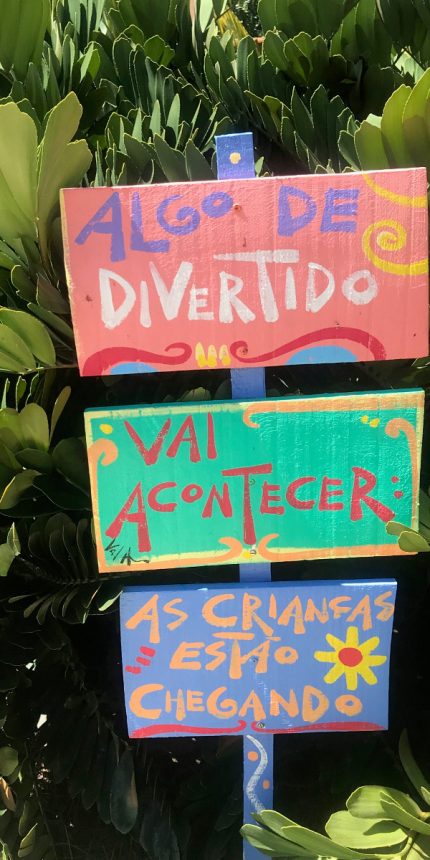 ALGO DE
DIVERTIDO
VAI
ACONTECER:
AS CRIANÇAS
ESTÃO
CHEGANDO